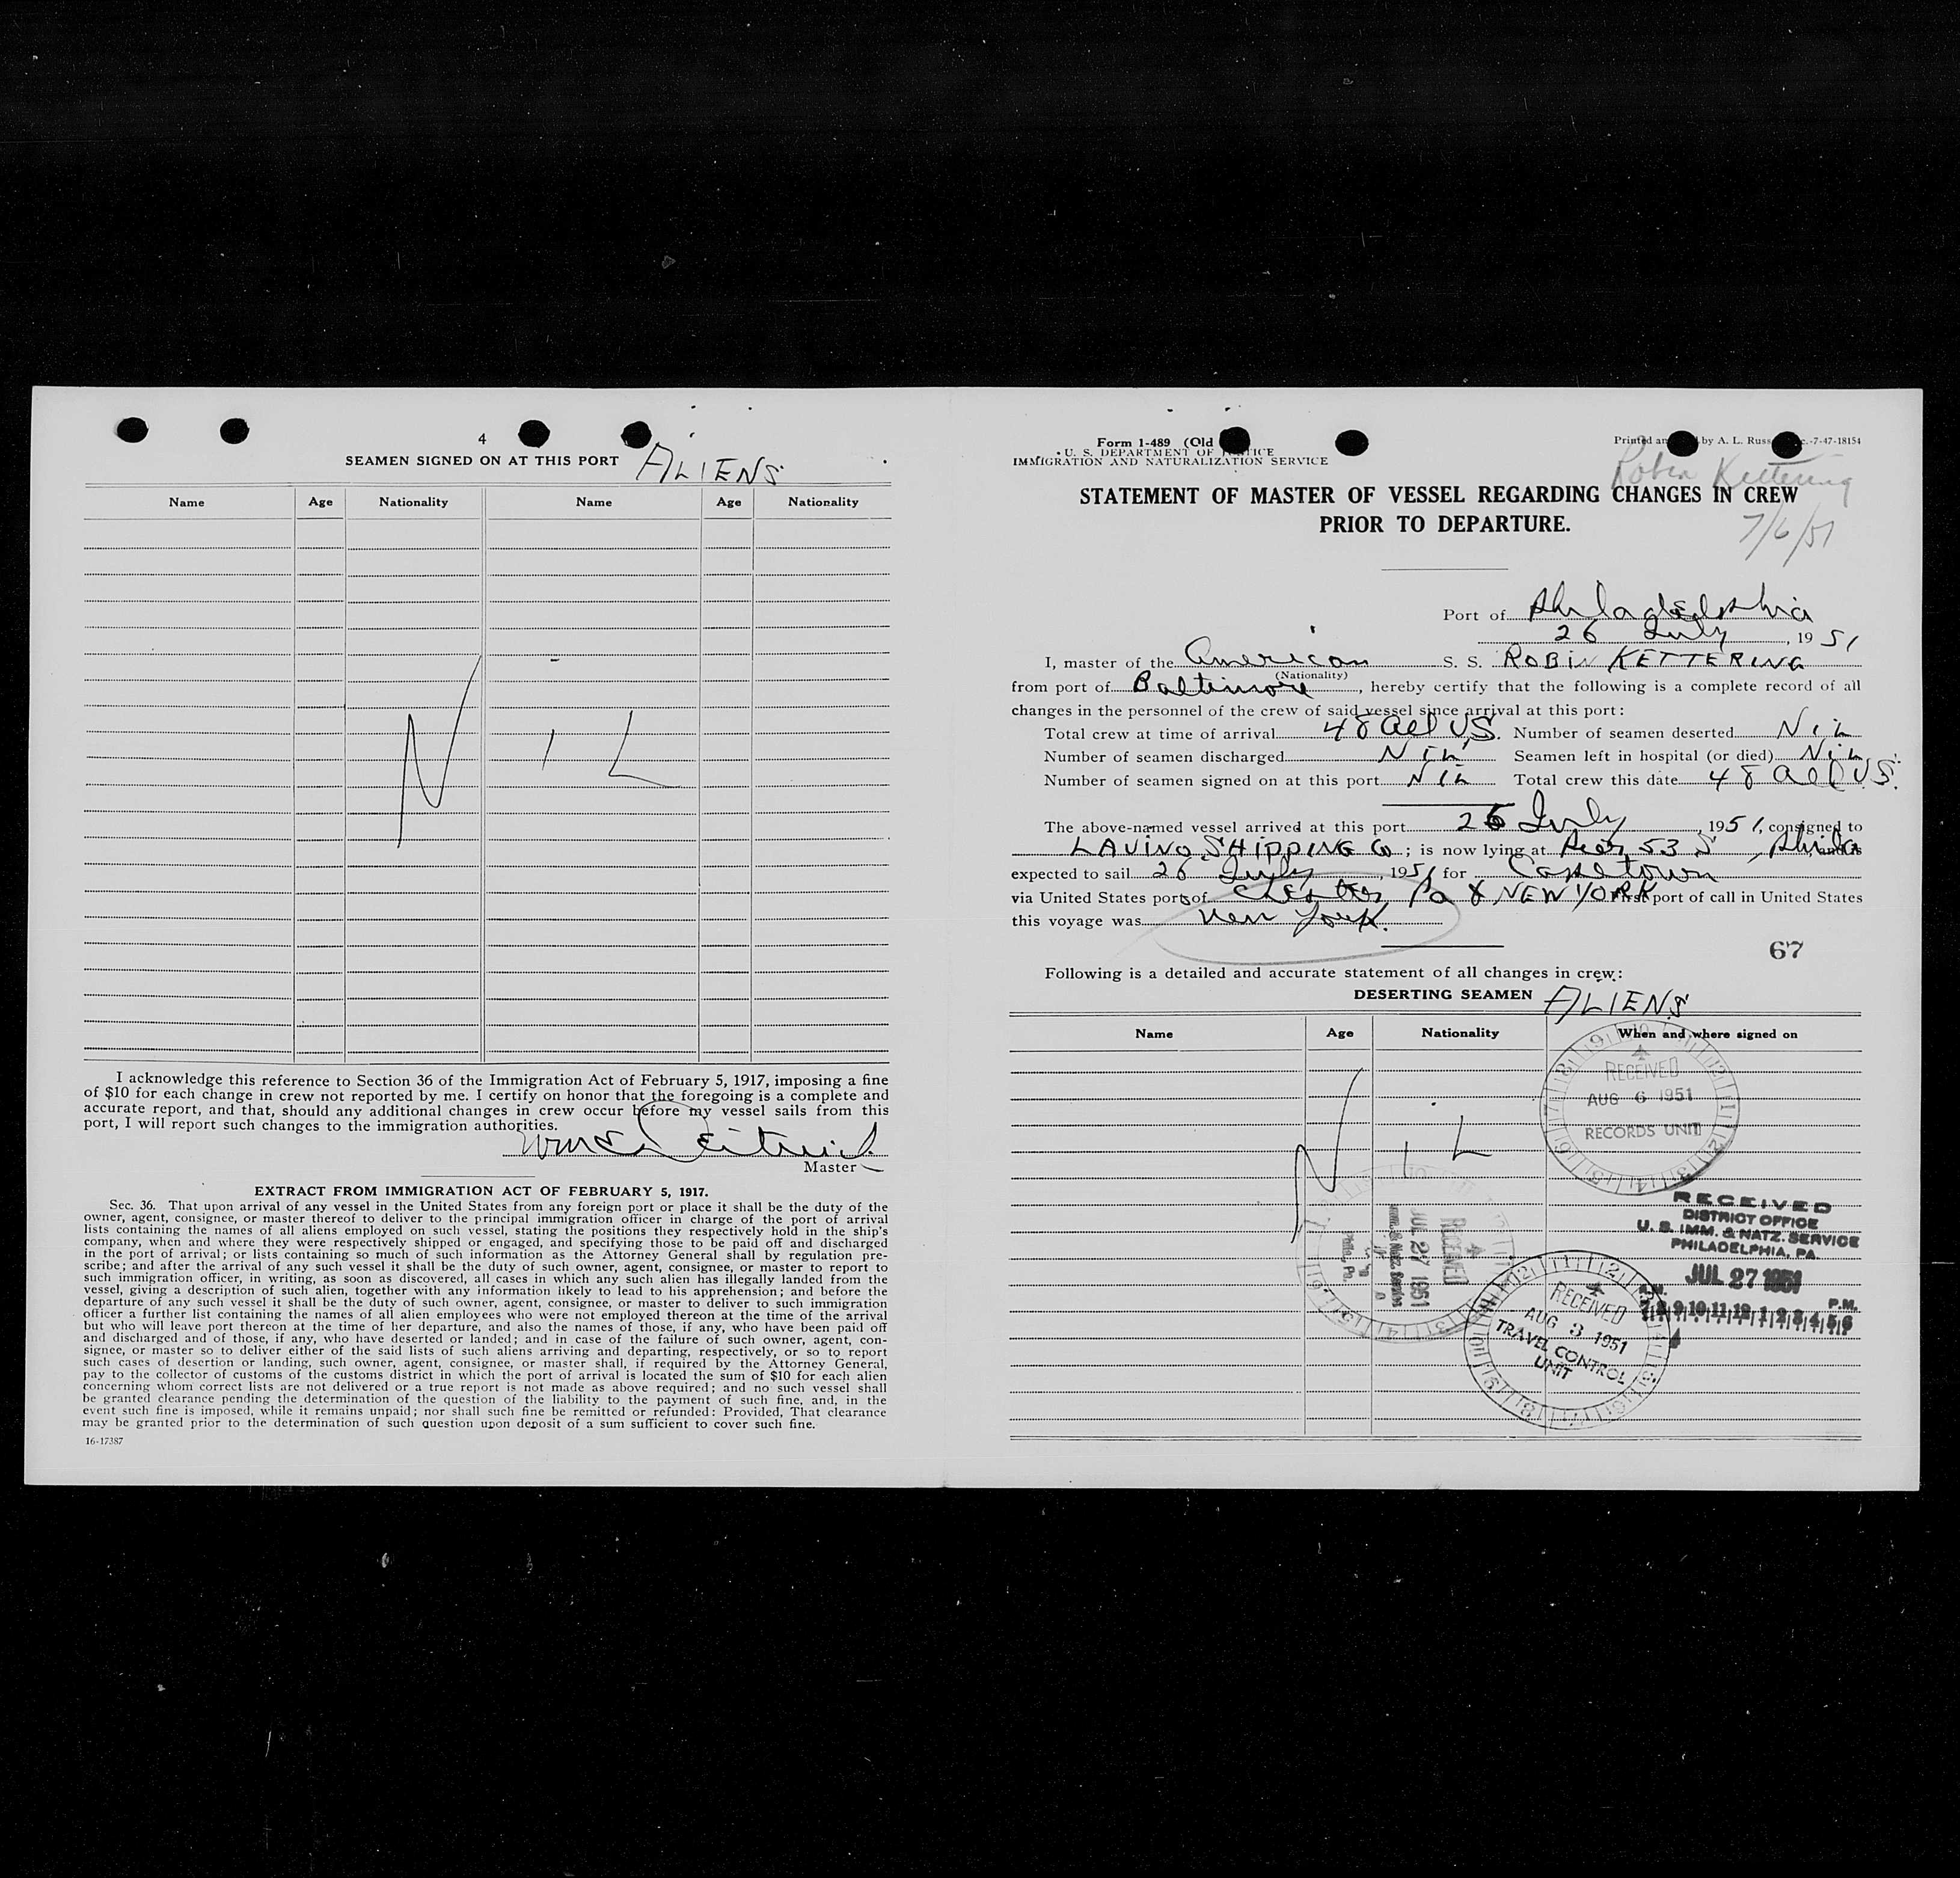 4
SEAMEN SIGNED ON AT THIS PORT ALIENS
Name Age Nationality Name Age Nationality
N I L
I acknowledge this reference to Section 36 of the Immigration Act of February 5, 1917, imposing a fine
of $10 for each change in crew not reported by me. I certify on honor that the foregoing is a complete and
accurate report, and that, should any additional changes in crew occur before my vessel sails from this
port, I will report such changes to the immigration authorities.
Master
EXTRACT FROM IMMIGRATION ACT OF FEBRUARY 5, 1917.
Sec. 36. That upon arrival of any vessel in the United States from any foreign port or place it shall be the duty of the
owner, agent, consignee, or master thereof to deliver to the principal immigration officer in charge of the port of arrival
lists containing the names of all aliens employed on such vessel, stating the positions they respectively hold in the ship's
company, when and where they were respectively shipped or engaged, and specifying those to be paid off and discharged
in the port of arrival; or lists containing so much of such information as the Attorney General shall by regulation pre-
scribe; and after the arrival of any such vessel it shall be the duty of such owner, agent, consignee, or master to report to
such immigration officer, in writing, as soon as discovered, all cases in which any such alien has illegally landed from the
vessel, giving a description of such alien, together with any information likely to lead to his apprehension; and before the
departure of any such vessel it shall be the duty of such owner, agent, consignee, or master to deliver to such immigration
officer a further list containing the names of all alien employees who were not employed thereon at the time of the arrival
but who will leave port thereon at the time of her departure, and also the names of those, if any, who have been paid off
and discharged and of those, if any, who have deserted or landed; and in case of the failure of such owner, agent, con-
signee, or master so to deliver either of the said lists of such aliens arriving and departing, respectively, or so to report
such cases of desertion or landing, such owner, agent, consignee, or master shall, if required by the Attorney General,
pay to the collector of customs of the customs district in which the port of arrival is located the sum of $10 for each alien
concerning whom correct lists are not delivered or a true report is not made as above required; and no such vessel shall
be granted clearance pending the determination of the question of the liability to the payment of such fine, and, in the
event such fine is imposed, while it remains unpaid; nor shall such fine be remitted or refunded: Provided, That clearance
may be granted prior to the determination of such question upon deposit of a sum sufficient to cover such fine.
16-17387
Form 1-489 (Old
U. S. DEPARTMENT OF JUSTICE
IMMIGRATION AND NATURALIZATION SERVICE
Printed an by A. L. Russ c.-7-47-18154
Robin Kettering
STATEMENT OF MASTER OF VESSEL REGARDING CHANGES IN CREW
PRIOR TO DEPARTURE.
7/6/51
Port of Philadelphia
26 July, 1951
I, master of the American S. S. ROBIN KETTERING
(Nationality)
from port of Baltimore, hereby certify that the following is a complete record of all
changes in the personnel of the crew of said vessel since arrival at this port:
Total crew at time of arrival 48 all US. Number of seamen deserted Nil
Number of seamen discharged Nil Seamen left in hospital (or died) Nil
Number of seamen signed on at this port Nil Total crew this date 48 all U.S.
The above-named vessel arrived at this port 26 July, 1951, consigned to
LAVINO SHIPPING Co; is now lying at Pier 53 S, Phila and is
expected to sail 26 July, 1951 for Capetown
via United States ports of Chester Pa & NEW YORK First port of call in United States
this voyage was New York.
67
Following is a detailed and accurate statement of all changes in crew:
DESERTING SEAMEN ALIENS
Name Age Nationality When and where signed on
N I L
RECEIVED
AUG 6 1951
RECORDS UNIT
RECEIVED
DISTRICT OFFICE
U. S. IMM. & NATZ. SERVICE
PHILADELPHIA, PA.
JUL 27 1951
A.M. P.M.
7 8 9 10 11 12 1 2 3 4 5 6
RECEIVED
JUL 27 1951
Imm. & Natz. Service
Phila, Pa.
RECEIVED
AUG 3 1951
TRAVEL CONTROL
UNIT